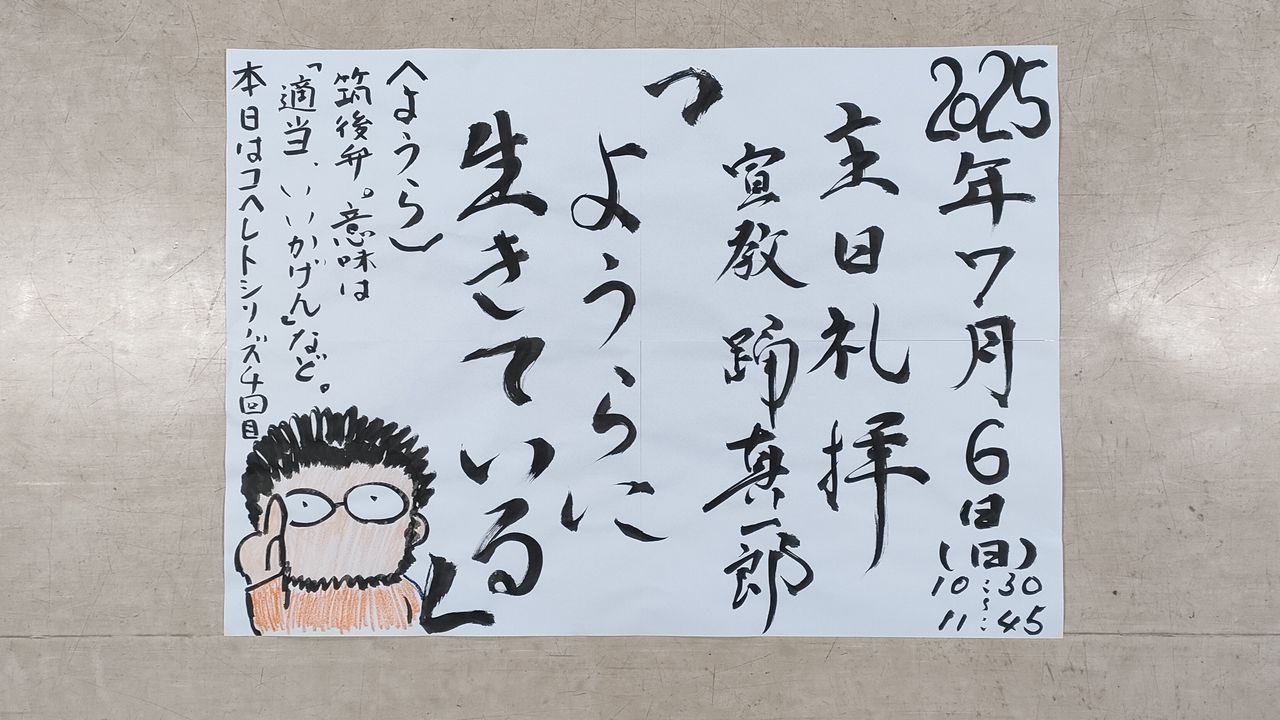 2025年7月6日(日)
10:30
〜
11:45
主日礼拝
宣教 踊真一郎
「ようらに
生きている」
(ようら)
筑後弁。意味は
「適当、いいかげん」など。
本日はコヘレトシリーズ4回目